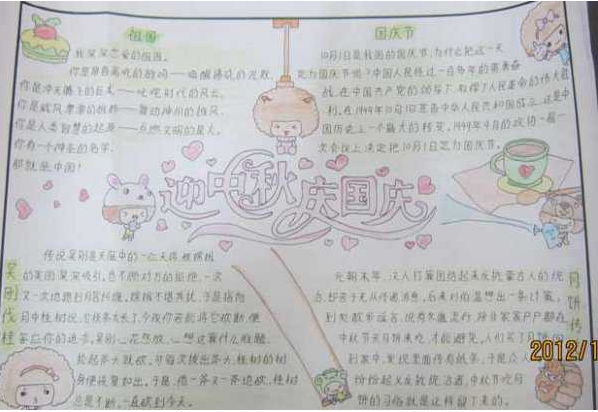 祖国
我深深恋爱的祖国。
你是昂首高吭的雄鸡——唤醒拂晓的沉默,
你是冲天腾飞的巨龙——叱咤时代的风云,
你是威风凛凛的雄狮——舞动神州的雄风,
你是人类智慧的起源——点燃文明的星火。
你有一个神圣的名字,
那就是中国!
国庆节
10月1日是我国的国庆节,为什么把这一天
定为国庆节呢?中国人民经过一百多年的英勇奋
战,在中国共产党的领导下,取得了人民革命的伟大胜
利,在1949年10月1日宣告中华人民共和国成立,这是中
国历史上一个最大的转变。1949年9月的政协一届一
次会议上决定把10月1日定为国庆节。
迎中秋庆国庆
吴刚伐桂
传说吴刚是天庭中的一位天将,被嫦娥
的美丽深深吸引,总不顾对方的拒绝,一次
又一次地跑到月宫纠缠,嫦娥不堪其扰,于是指院
月中桂树说:
答应你的追求,吴刚心花怒放,
抡起斧头就砍,可每次拔出斧头,桂树的树
身便恢复如出,于是,他一斧又一斧地砍,桂树
总是不断,一直砍到今天。
月饼传
元朝末年,汉人打算团结起来反抗蒙古人的统
治,却苦于无从传递消息。后来刘伯温想出一条计策,
到处散布谣言,说有冬瘟流行,除非家家户户都在
中秋节买月饼来吃,才能避免。人们买了月饼回
到家中,发现里面传有纸条,于是众人
纷纷起义反抗统治者,中秋节吃月
饼的习俗就是这样留了下来。
2012/1